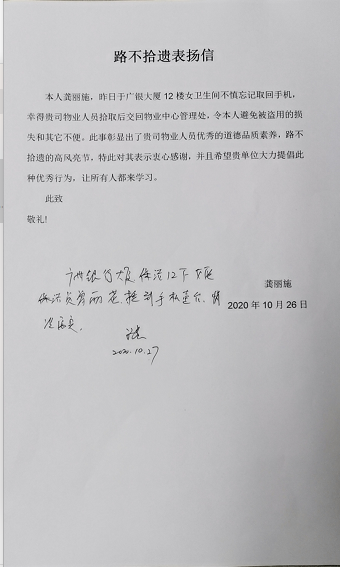 路不拾遗表扬信
本人龚丽施，昨日于广银大厦 12 楼女卫生间不慎忘记取回手机，
幸得贵司物业人员拾取后交回物业中心管理处，令本人避免被盗用的损
失和其它不便。此事彰显出了贵司物业人员优秀的道德品质素养，路不
拾遗的高风亮节，特此对其表示衷心感谢，并且希望贵单位大力提倡此
种优秀行为，让所有人都来学习。
此致
敬礼!
龚丽施
2020 年 10 月 26 日
银行大厦保洁12下
保洁员 丽 到手机
2020.10.27